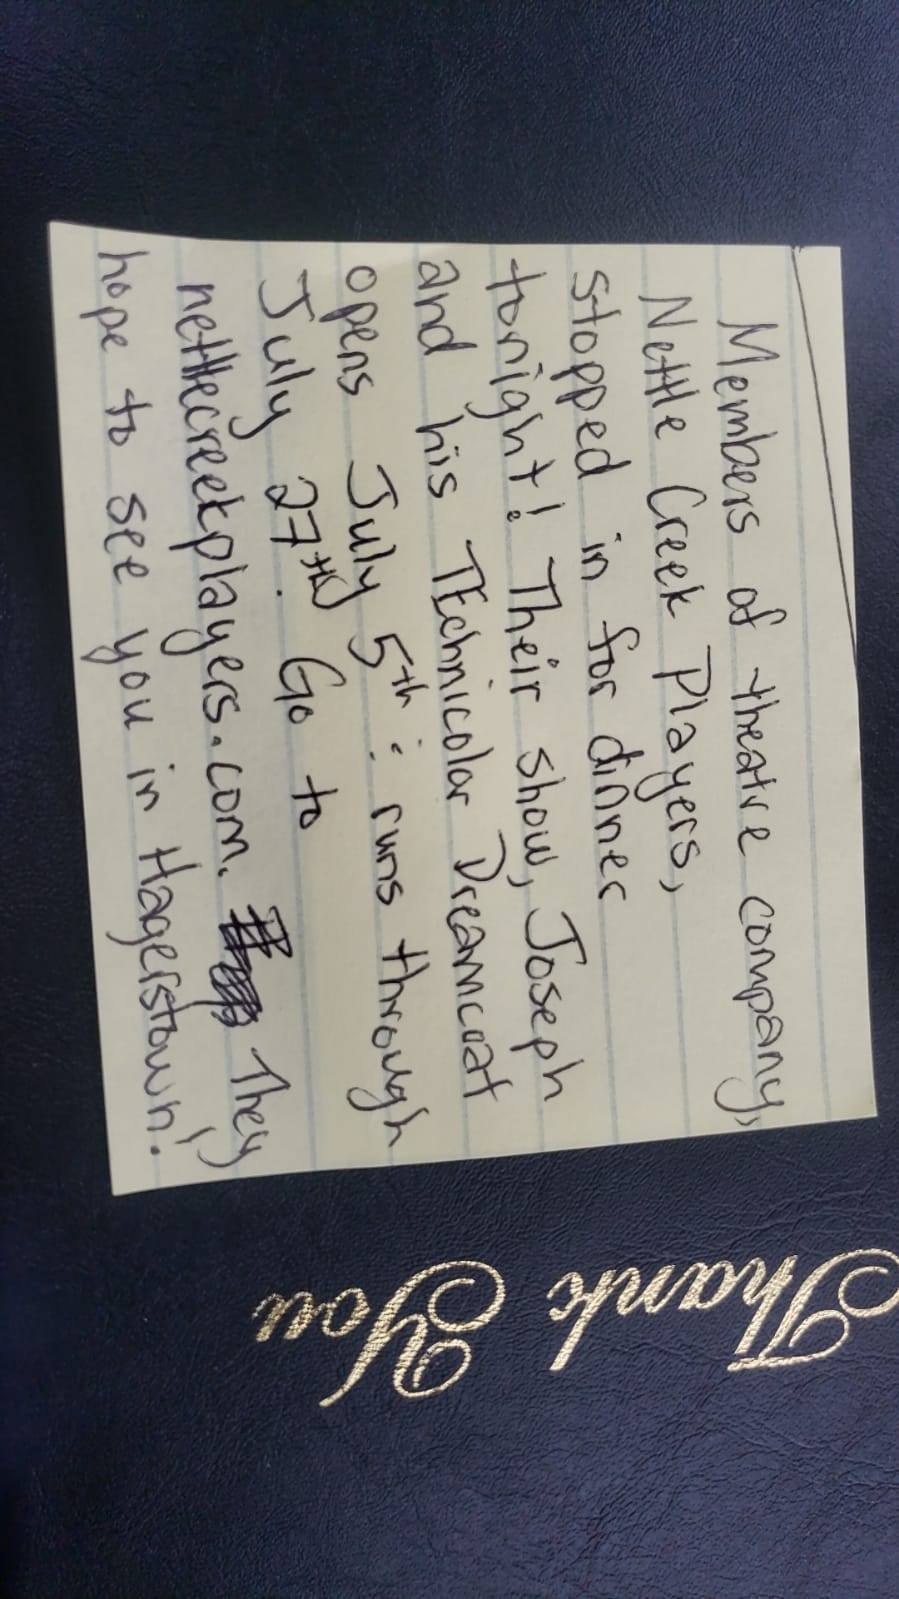 Members of theatre company,
Nettle Creek Players,
stopped in for dinner
tonight! Their show, Joseph
and his TEchnicolor Dreamcoat
opens July 5th : runs through
July 27th. Go to
nettlecreekplayers.com. They
hope to see you in Hagerstown!
Thank You